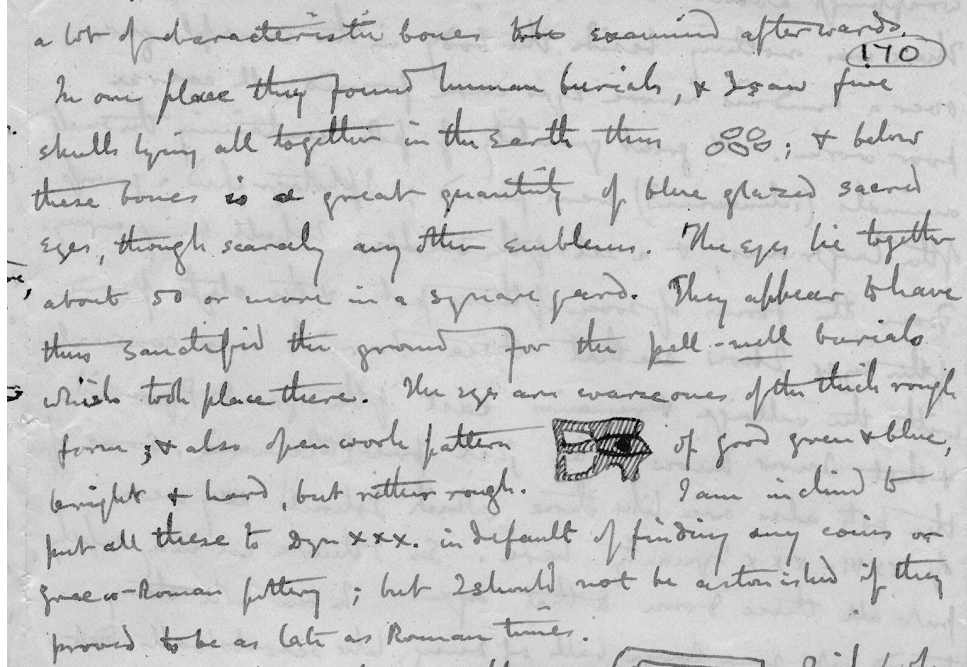 a lot of characteristic bones to be examined afterwards.
170
In one place they found human burials, & I saw five
skulls lying all together in the earth thus ; & below
these bones is a great quantity of blue glazed sacred
eyes, though scarcely any other emblems. The eyes lie together
about 50 or more in a square yard. They appear to have
thus sanctified the ground for the pell-mell burials
which took place there. The eyes are coarse ones of the thick rough
form ; & also open work pattern of good green & blue,
bright & hard, but rather rough. I am inclined to
put all these to Dyn XXX. in default of finding any coins or
graeco-Roman pottery ; but I should not be astonished if they
proved to be as late as Roman times.